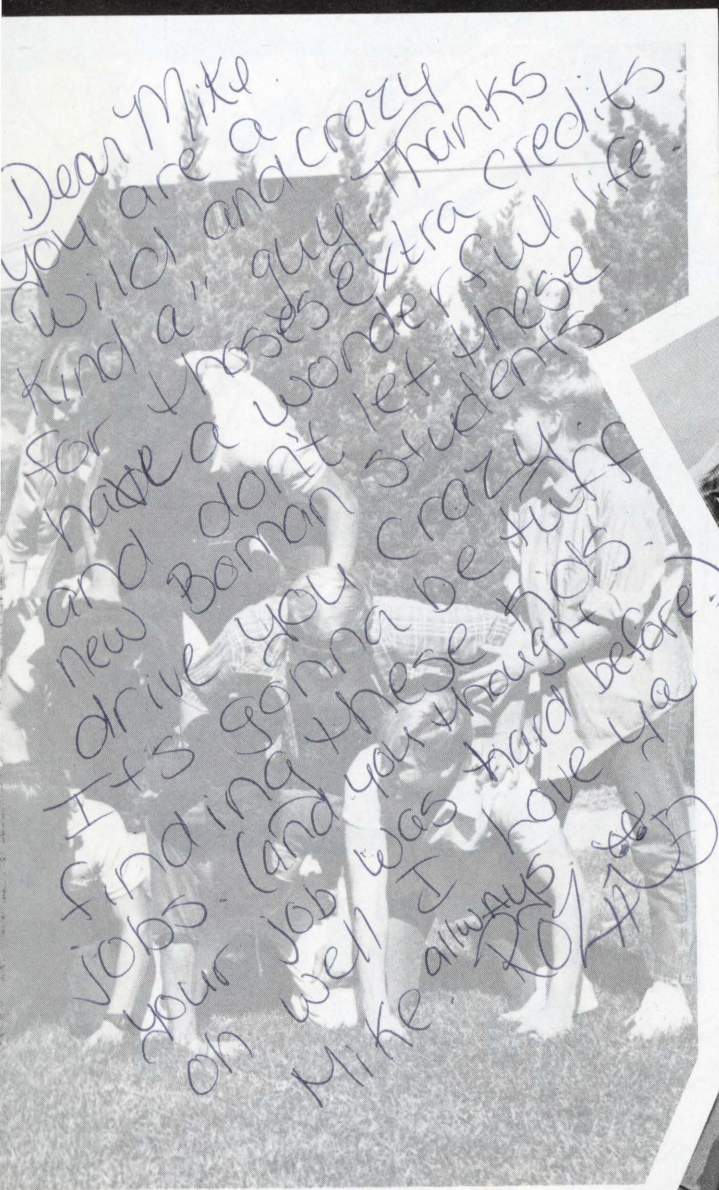 Dear Mike.
you are a
wild and crazy
kind a" guy, Thanks
for thoses extra credits.
have a wonderful life.
and don't let these
new Boman students
drive you crazy.
Its gonna be tuff
finding these kids.
jobs. (and you thought
your job was hard before?)
oh well I Love ya
Mike. allways.